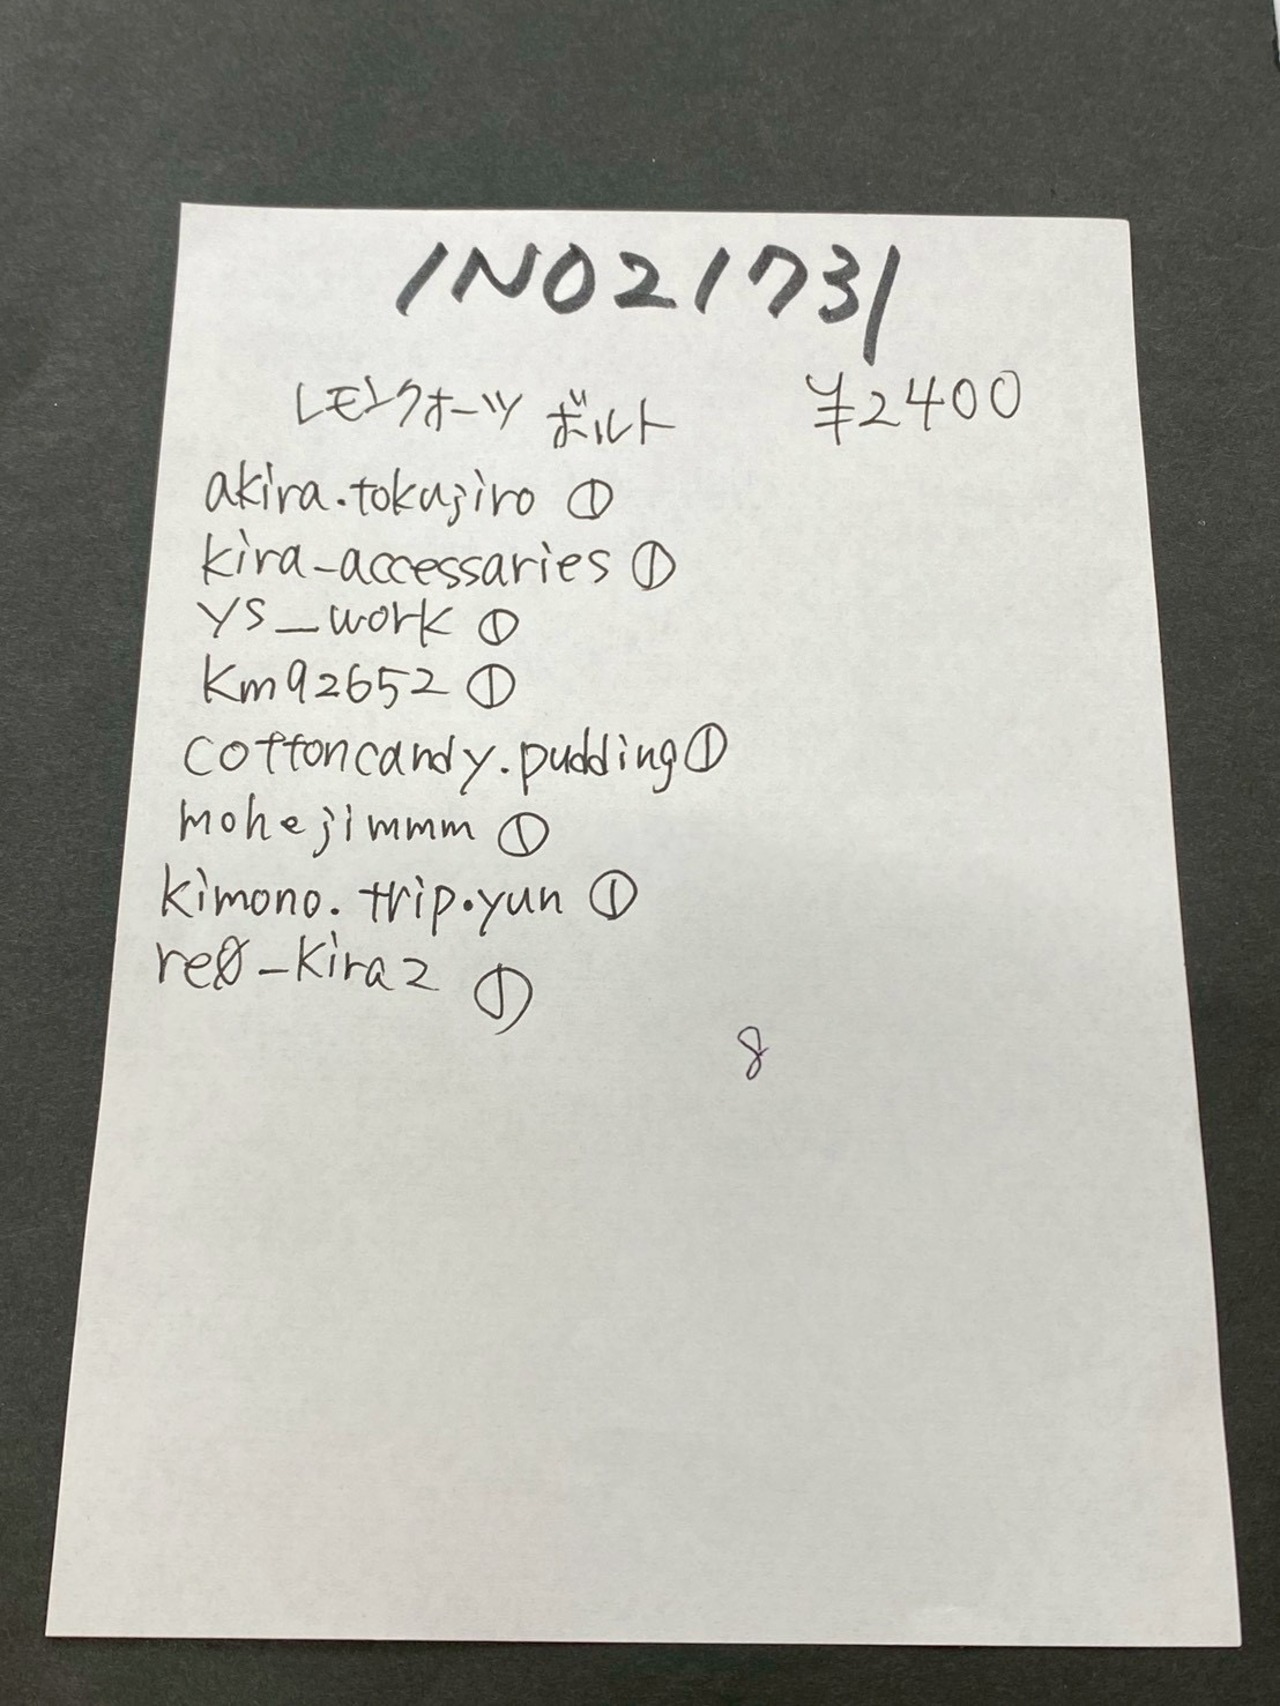 INO21731
レモンクォーツ ボルト ¥2400
akira.tokujiro ①
kira_accessaries ①
ys_work ①
km92652 ①
cottoncandy.pudding ①
mohejimmm ①
kimono.trip.yun ①
re0_kira2 ①
8